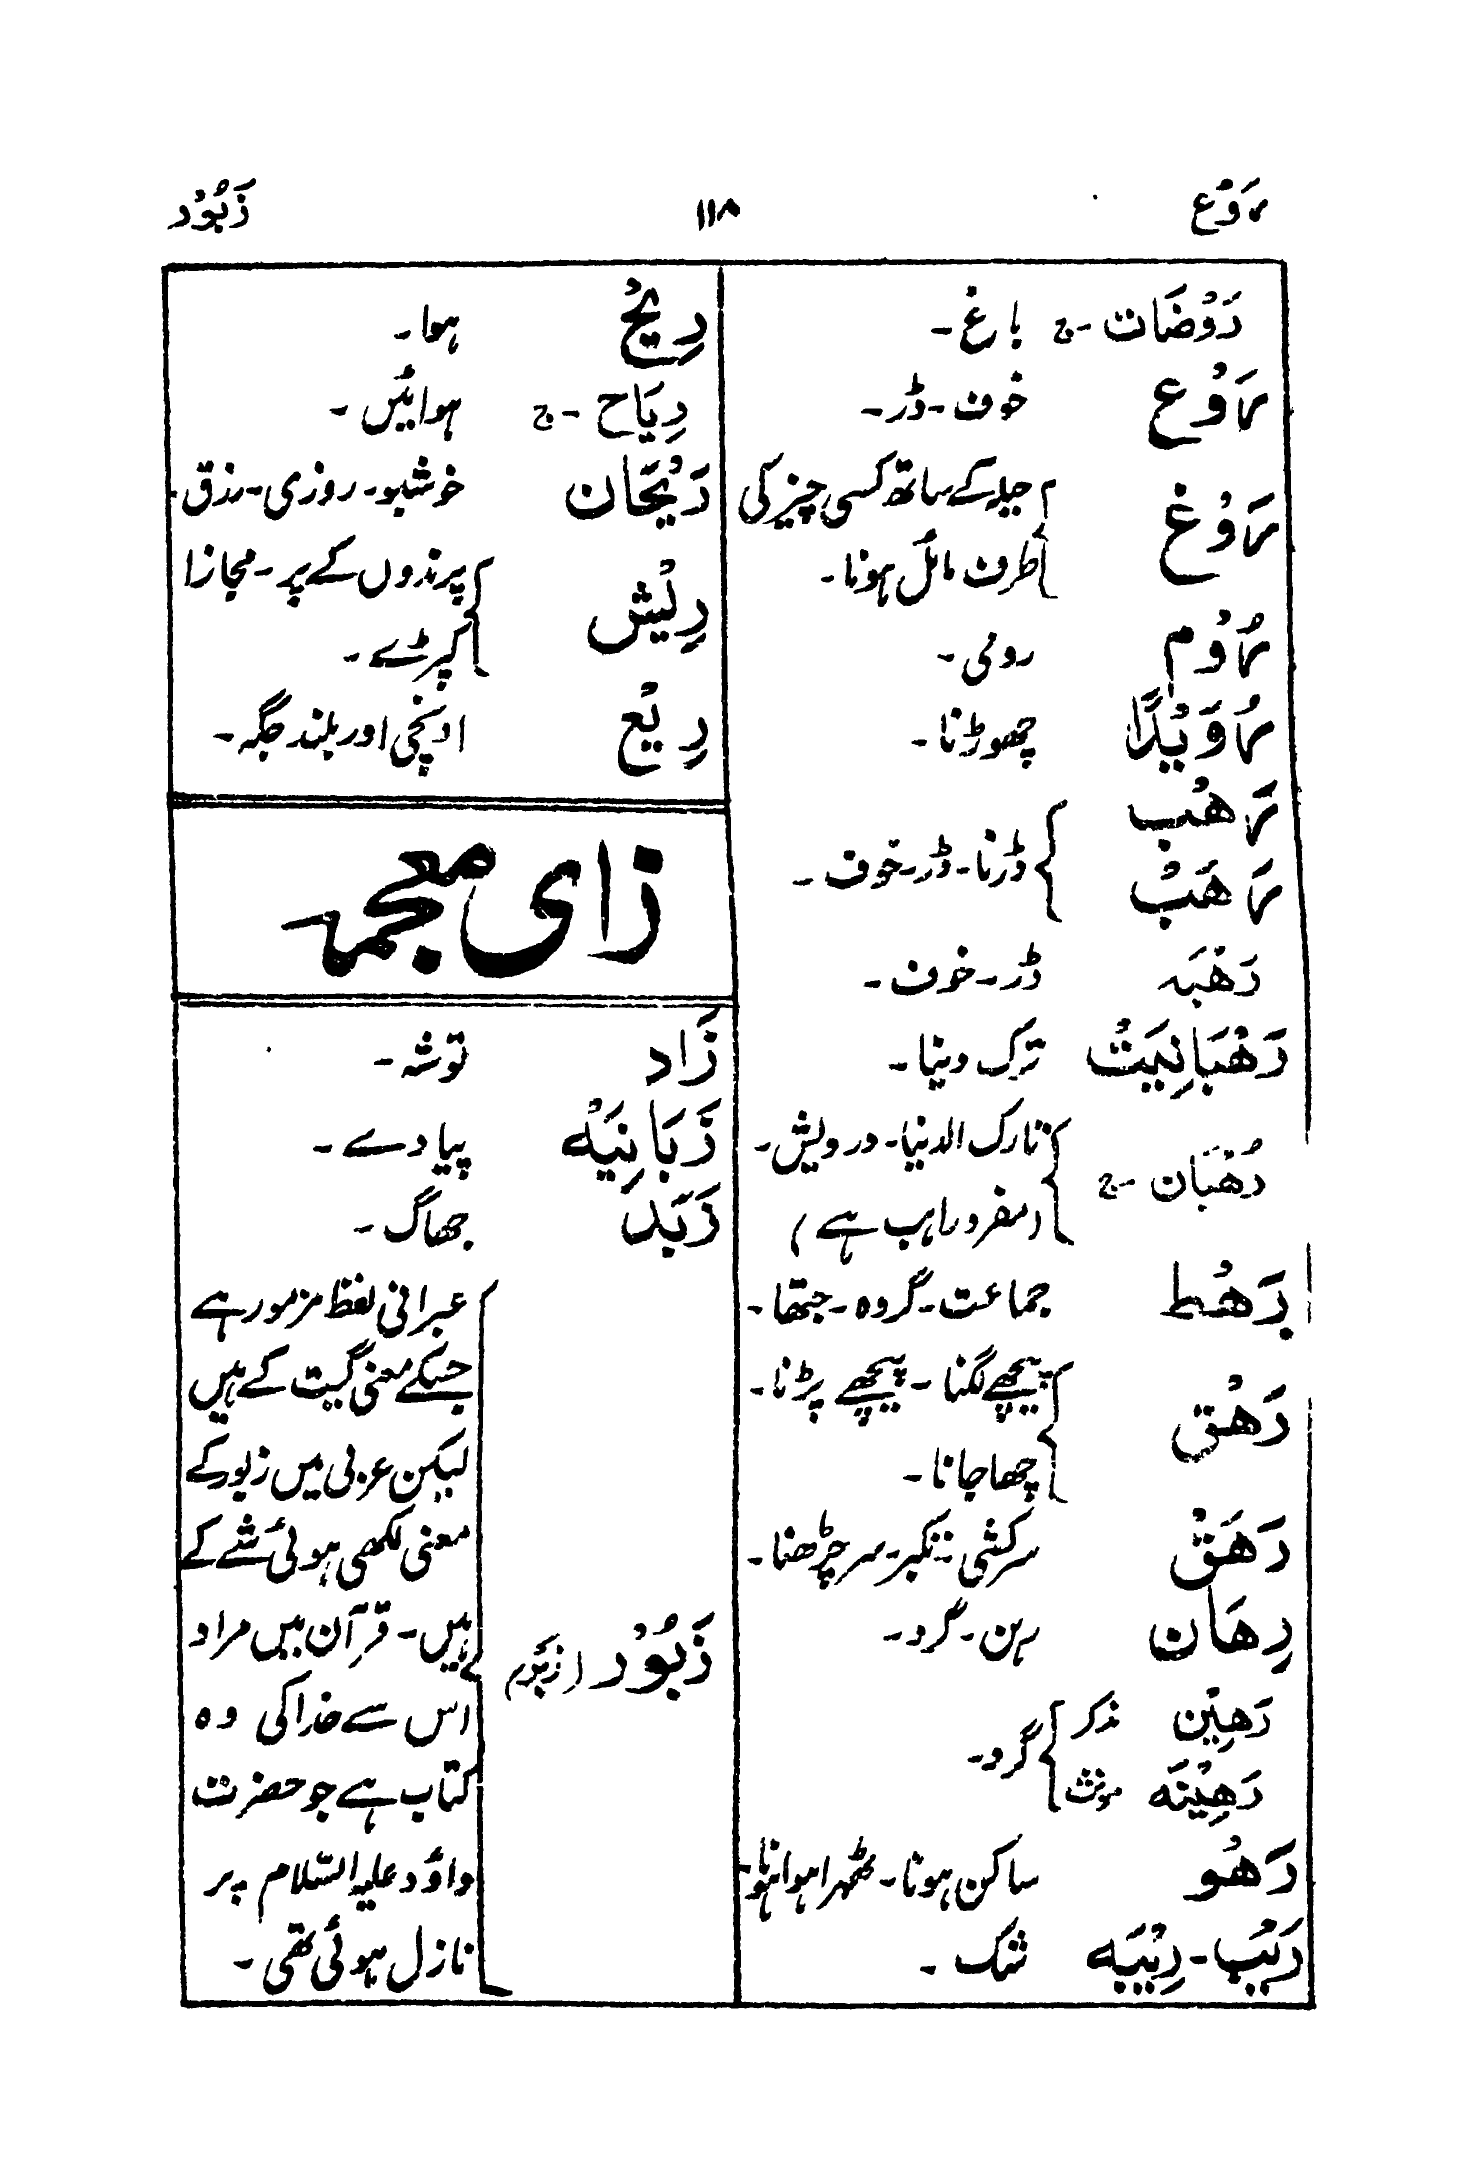 رَوْع ۱۱۸ زَبُوْر
رَوْضَات -ج باغ۔
رَوْع خوف۔ڈر۔
رَوْغ حیلہ کے ساتھ کسی چیز کی
طرف مائل ہونا۔
رُوْم رومی۔
رُوَيْدًا چھوڑنا۔
رَهْب
رَهَبْ ڈرنا۔ڈر۔خوف۔
رَهْبَه ڈر۔خوف۔
رَهْبَانِيَتْ ترک دنیا۔
رُهْبَان -ج تارک الدنیا۔درویش۔
(مفرد راہب ہے)
رَهْط جماعت۔گروہ۔جتھا۔
رَهْق پیچھے لگنا۔پیچھے پڑنا۔
چھا جانا۔
رَهَقْ سرکشی۔تکبر۔سر چڑھنا۔
رِهَان رہن۔گرد۔
رَهِيْن مذکر
رَهِيْنَه مونث گرد۔
رَهْو ساکن ہونا۔ٹھہرا ہوا ہونا۔
رَيْب۔رِيْبَه شک۔
رِيْحْ ہوا۔
رِيَاح -ج ہوائیں۔
رَيْحَان خوشبو۔روزی۔رزق۔
رِيْش پرندوں کے پر۔مجازا
کپڑے۔
رِيْع اونچی اور بلند جگہ۔
زای معجمہ
زَاد توشہ۔
زَبَانِيَهْ پیادے۔
زَبَد جھاگ۔
عبرانی لفظ مزمور ہے
جسکے معنی گیت کے ہیں
لیکن عربی میں زبور کے
معنی لکھی ہوئی شے کے
ہیں۔قرآن میں مراد
زَبُوْر (زبور) اس سے خدا کی وہ
کتاب ہے جو حضرت
داؤد علیہ السّلام پر
نازل ہوئی تھی۔